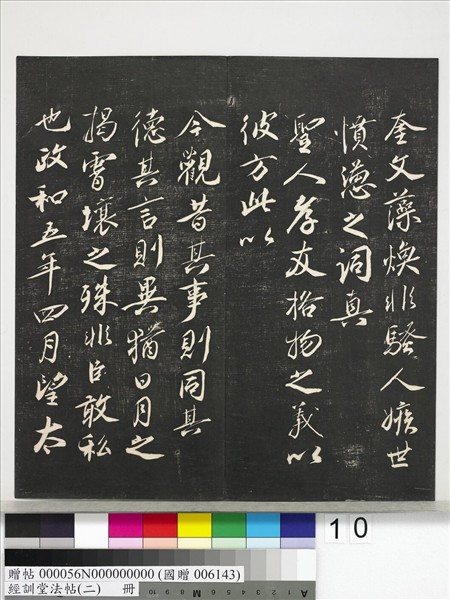 奎文藻煥非騷人嫉世
憤懣之詞真
聖人孝友格物之義以
彼方此以
今觀昔其事則同其
德其言則異猶日月之
揭霄壤之殊非臣敢私
也政和五年四月望太
10
贈帖 000056N000000000 (國贈 006143)
經訓堂法帖(二) 冊